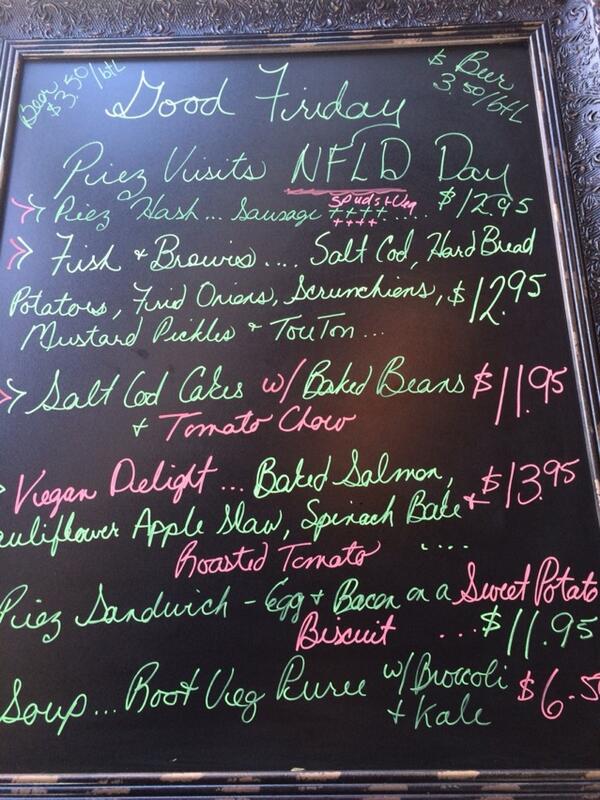 Beer $3.50/btl
$ Beer 3.50/btl
Good Friday
Piez Visits NFLD Day
Spuds + Veg
Piez Hash... Sausage ++++ ++++ ..... $12.95
Fish + Brewies .... Salt Cod, Hard Bread
Potatoes, Fried Onions, Scrunchiens, $12.95
Mustard Pickles + TouTon...
Salt Cod Cakes w/ Baked Beans $11.95
+ Tomato Chow
Viegan Delight ... Baked Salmon, $13.95
auliflower Apple Slaw, Spinach Bake +
Roasted Tomato ....
Piez Sandwich - Egg + Bacon on a Sweet Potato
Biscuit ... $11.95
Soup... Root Veg Puree w/ Broccoli $6.5
+ Kale